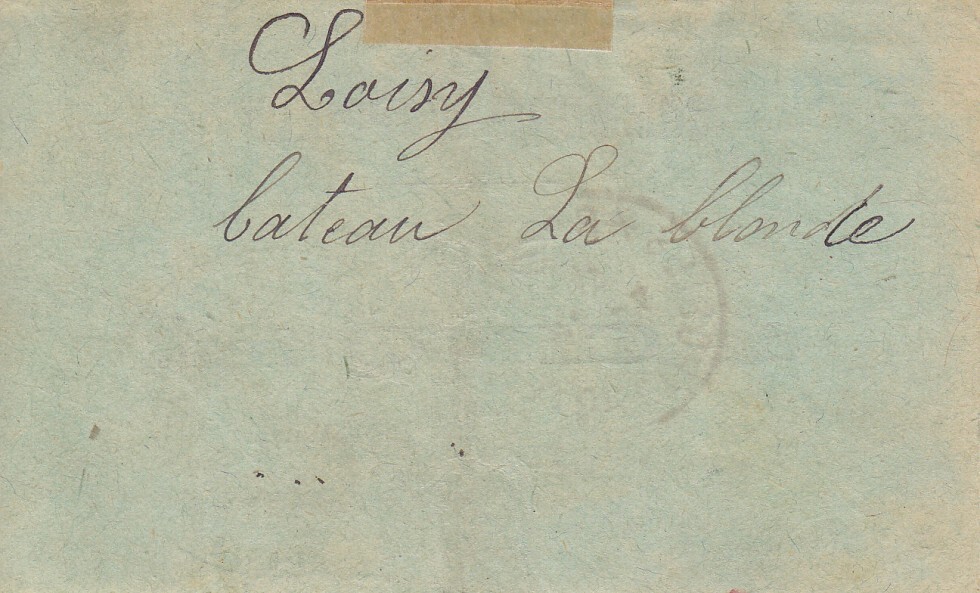 Loisy
bateau La blonde